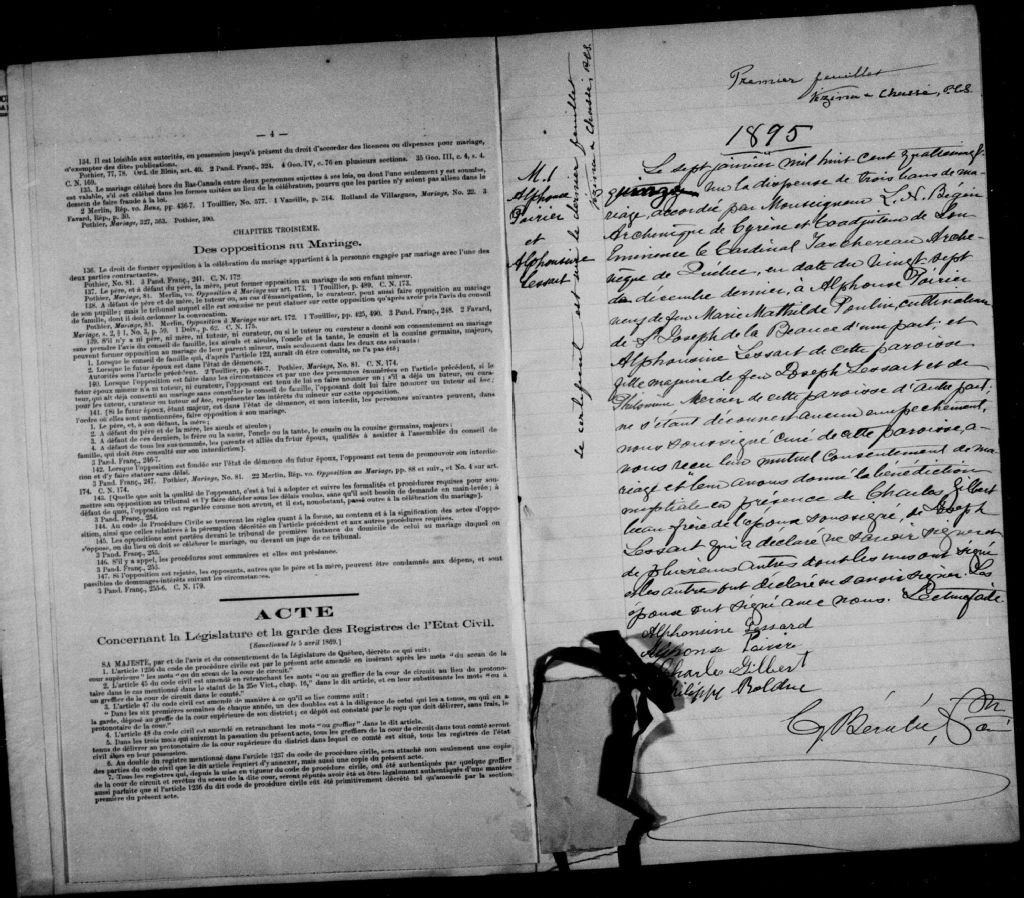 — 4 —
134. Il est loisible aux autorités, en possession jusqu'à présent du droit d'accorder des licences ou dispenses pour mariage,
d'exempter des dites publications.
Pothier, 77, 78. Ord. de Blois, art. 40. 2 Pand. Franç., 324. 4 Geo. IV, c. 76 en plusieurs sections. 35 Geo. III, c. 4, s. 4.
C. N. 169.
135. Le mariage célébré hors du Bas-Canada entre deux personnes sujettes à ses lois, ou dont l'une seulement y est soumise,
est valable, s'il est célébré dans les formes usitées au lieu de la célébration, pourvu que les parties n'y soient pas allées dans le
dessein de faire fraude à la loi.
2 Merlin, Rép. vo. Bans, pp. 436-7. 1 Touillier, No. 577. 1 Vazeille, p. 314. Rolland de Villargues, Mariage, No. 22. 3
Favard, Rép., p. 30.
Pothier, Mariage, 327, 363. Pothier, 390.
CHAPITRE TROISIÈME.
Des oppositions au Mariage.
136. Le droit de former opposition à la célébration du mariage appartient à la personne engagée par mariage avec l'une des
deux parties contractantes.
Pothier, No. 81. 3 Pand. Franç., 241. C. N. 172.
137. Le père, et à défaut du père, la mère, peut former opposition au mariage de son enfant mineur.
Pothier, Mariage, 81. Merlin, vo. Mariage sur art. 173. 1 Touillier, p. 489. C. N. 173.
138. A défaut de père et de mère, le tuteur, ou, au cas d'émancipation, le curateur, peut aussi faire opposition au mariage
de son pupille; mais le tribunal auquel elle est soumise ne peut statuer sur cette opposition qu'après avoir pris l'avis du conseil
de famille, dont il doit ordonner la convocation.
Pothier, Mariage, 81. Merlin, Opposition au Mariage, sur art. 172. 1 Touillier, pp. 425, 490. 3 Pand. Franç., 248. 2 Favard,
Mariage, s. 2, § 1, No. 3, p. 59. 1 Dolv., p. 62. C. N. 175.
139. S'il n'y a ni père, ni mère, ni tuteur, ni curateur, ou si le tuteur ou curateur a donné son consentement au mariage
sans prendre l'avis du conseil de famille, les aïeuls et aïeules, l'oncle et la tante, le cousin et la cousine germains, majeurs,
peuvent former opposition au mariage de leur parent mineur, mais seulement dans les deux cas suivants:
1. Lorsque le conseil de famille qui, d'après l'article 122, aurait dû être consulté, ne l'a pas été;
2. Lorsque le futur époux est dans l'état de démence.
Autorités sous l'article précédent. 2 Touillier, pp. 446-7. Pothier, Mariage, No. 81. C. N. 174.
140. Lorsque l'opposition est faite dans les circonstances et par une des personnes énumérées en l'article précédent, si le
futur époux mineur n'a ni tuteur, ni curateur, l'opposant est tenu de lui en faire nommer un; s'il a déjà un tuteur, ou cura-
teur, qui ait déjà consenti au mariage sans consulter le conseil de famille, l'opposant doit lui faire nommer un tuteur ad hoc;
pour les tuteur, curateur ou tuteur ad hoc, représenter les intérêts du mineur sur cette opposition.
141. [Si le futur époux, étant majeur, est dans l'état de démence, et non interdit, les personnes suivantes peuvent, dans
l'ordre où elles sont mentionnées, faire opposition à son mariage.
1. Le père, et, à son défaut, la mère;
2. A défaut du père et de la mère, les aïeuls et aïeules;
3. A défaut de ces derniers, le frère ou la sœur, l'oncle ou la tante, le cousin ou la cousine germains, majeurs;
4. A défaut de tous les sus-nommés, les parents et alliés du futur époux, qualifiés à assister à l'assemblée du conseil de
famille, qui doit être consulté sur son interdiction].
3 Pand. Franç., 246-7.
142. Lorsque l'opposition est fondée sur l'état de démence du futur époux, l'opposant est tenu de promouvoir son interdic-
tion et d'y faire statuer sans délai.
3 Pand. Franç., 247. Pothier, Mariage, No. 81. 22 Merlin, Rép. vo. Opposition au Mariage, pp. 88 et suiv., et No. 4 sur art.
174. C. N. 174.
143. [Quelle que soit la qualité de l'opposant, c'est à lui à adopter et suivre les formalités et procédures requises pour sou-
mettre son opposition au tribunal et l'y faire décider sous les délais voulus, sans qu'il soit besoin de demande en main-levée; à
défaut de quoi, l'opposition est regardée comme non avenue, et il est, nonobstant, passé outre à la célébration du mariage].
3 Pand. Franç., 254.
144. Au code de Procédure Civile se trouvent les règles quant à la forme, au contenu et à la signification des actes d'oppo-
sition, ainsi que celles relatives à la péremption décrétée en l'article précédent et aux autres procédures requises.
145. Les oppositions sont portées devant le tribunal de première instance du domicile de celui au mariage duquel on
s'oppose, ou du lieu où doit se célébrer le mariage, ou devant un juge de ce tribunal.
3 Pand. Franç., 255.
146. S'il y a appel, les procédures sont sommaires et elles ont préséance.
3 Pand. Franç., 255.
147. Si l'opposition est rejetée, les opposants, autres que le père et la mère, peuvent être condamnés aux dépens, et sont
passibles de dommages-intérêts suivant les circonstances.
3 Pand. Franç., 255-6. C. N. 179.
ACTE
Concernant la Législature et la garde des Registres de l'Etat Civil.
[Sanctionné le 5 avril 1869.]
SA MAJESTÉ, par et de l'avis et du consentement de la Législature de Québec, décrète ce qui suit:
1. L'article 1236 du code de procédure civile est par le présent acte amendé en insérant après les mots "du sceau de la
cour supérieure" les mots "ou du sceau de la cour de circuit."
2. L'article 45 du code civil est amendé en retranchant les mots "ou au greffier de la cour de circuit au lieu du protono-
taire dans le cas mentionné dans le statut de la 25e Vict., chap. 16," dans le dit article, et en leur substituant les mots "ou à
un greffier de la cour de circuit dans le comté."
3. L'article 47 du code civil est amendé de manière à ce qu'il se lise comme suit:
« Dans les six premières semaines de chaque année, un des doubles est à la diligence de celui qui les a tenus, ou qui en a
la garde, déposé au greffe de la cour supérieure de son district; ce dépôt est constaté par le reçu que doit délivrer, sans frais, le
protonotaire de la cour."
4. L'article 48 du code civil est amendé en retranchant les mots "ou greffier" dans le dit article.
5. Dans les trois mois qui suivront la passation du présent acte, tous les greffiers de la cour de circuit dans tout comté seront
tenus de délivrer au protonotaire de la cour supérieure du district dans lequel ce comté est situé, tous les registres de l'état
civil alors en leur possession.
6. Au double du registre mentionné dans l'article 1237 du code de procédure civile, sera attaché non seulement une copie
des parties du code civil que le dit article requiert d'y annexer, mais aussi une copie du présent acte.
7. Tous les registres qui, depuis la mise en vigueur du code de procédure civile, ont été authentiqués par quelque greffier
de la cour de circuit et revêtus du sceau de la dite cour, seront réputés avoir été et être légalement authentiqués d'une manière
aussi parfaite que si l'article 1236 du dit code de procédure civile eût été primitivement décrété tel qu'amendé par la section
première du présent acte.
Premier feuillet
Vézina & Chassé, P.C.S.
1895
M. 1
Alphonse
Poirier
et
Alphonsine
Lessart
Le sept janvier mil huit cent quatrevingt
quinze vu la dispense de trois bans de ma-
riage, accordée par Monseigneur L. N. Bégin
Archevêque de Cyrène et Coadjuteur de Son
Eminence le Cardinal Taschereau Arche-
vêque de Québec, en date du vingt sept
de décembre dernier, à Alphonse Poirier
veuf de feu Marie Mathilde Poulin, cultivateur
de St Joseph de la Beauce d'une part, et
Alphonsine Lessart de cette paroisse
fille majeure de feu Joseph Lessart et de
Philomène Mercier de cette paroisse d'autre part.
ne s'étant découvert aucun empêchement,
nous soussigné curé de cette paroisse, a-
vons reçu leur mutuel consentement de ma-
riage et leur avons donné la bénédiction
nuptiale en présence de Charles Gilbert
beau frère de l'époux soussigné, de Joseph
Lessart qui a déclaré ne savoir signer et
de plusieurs autres dont les uns ont signé
et les autres ont déclaré ne savoir signer. Les
époux ont signé avec nous. Lecture faite
Alphonsine Lessard
Alphonse Poirier
Charles Gilbert
Philippe Bolduc
Bérubé, Ptre